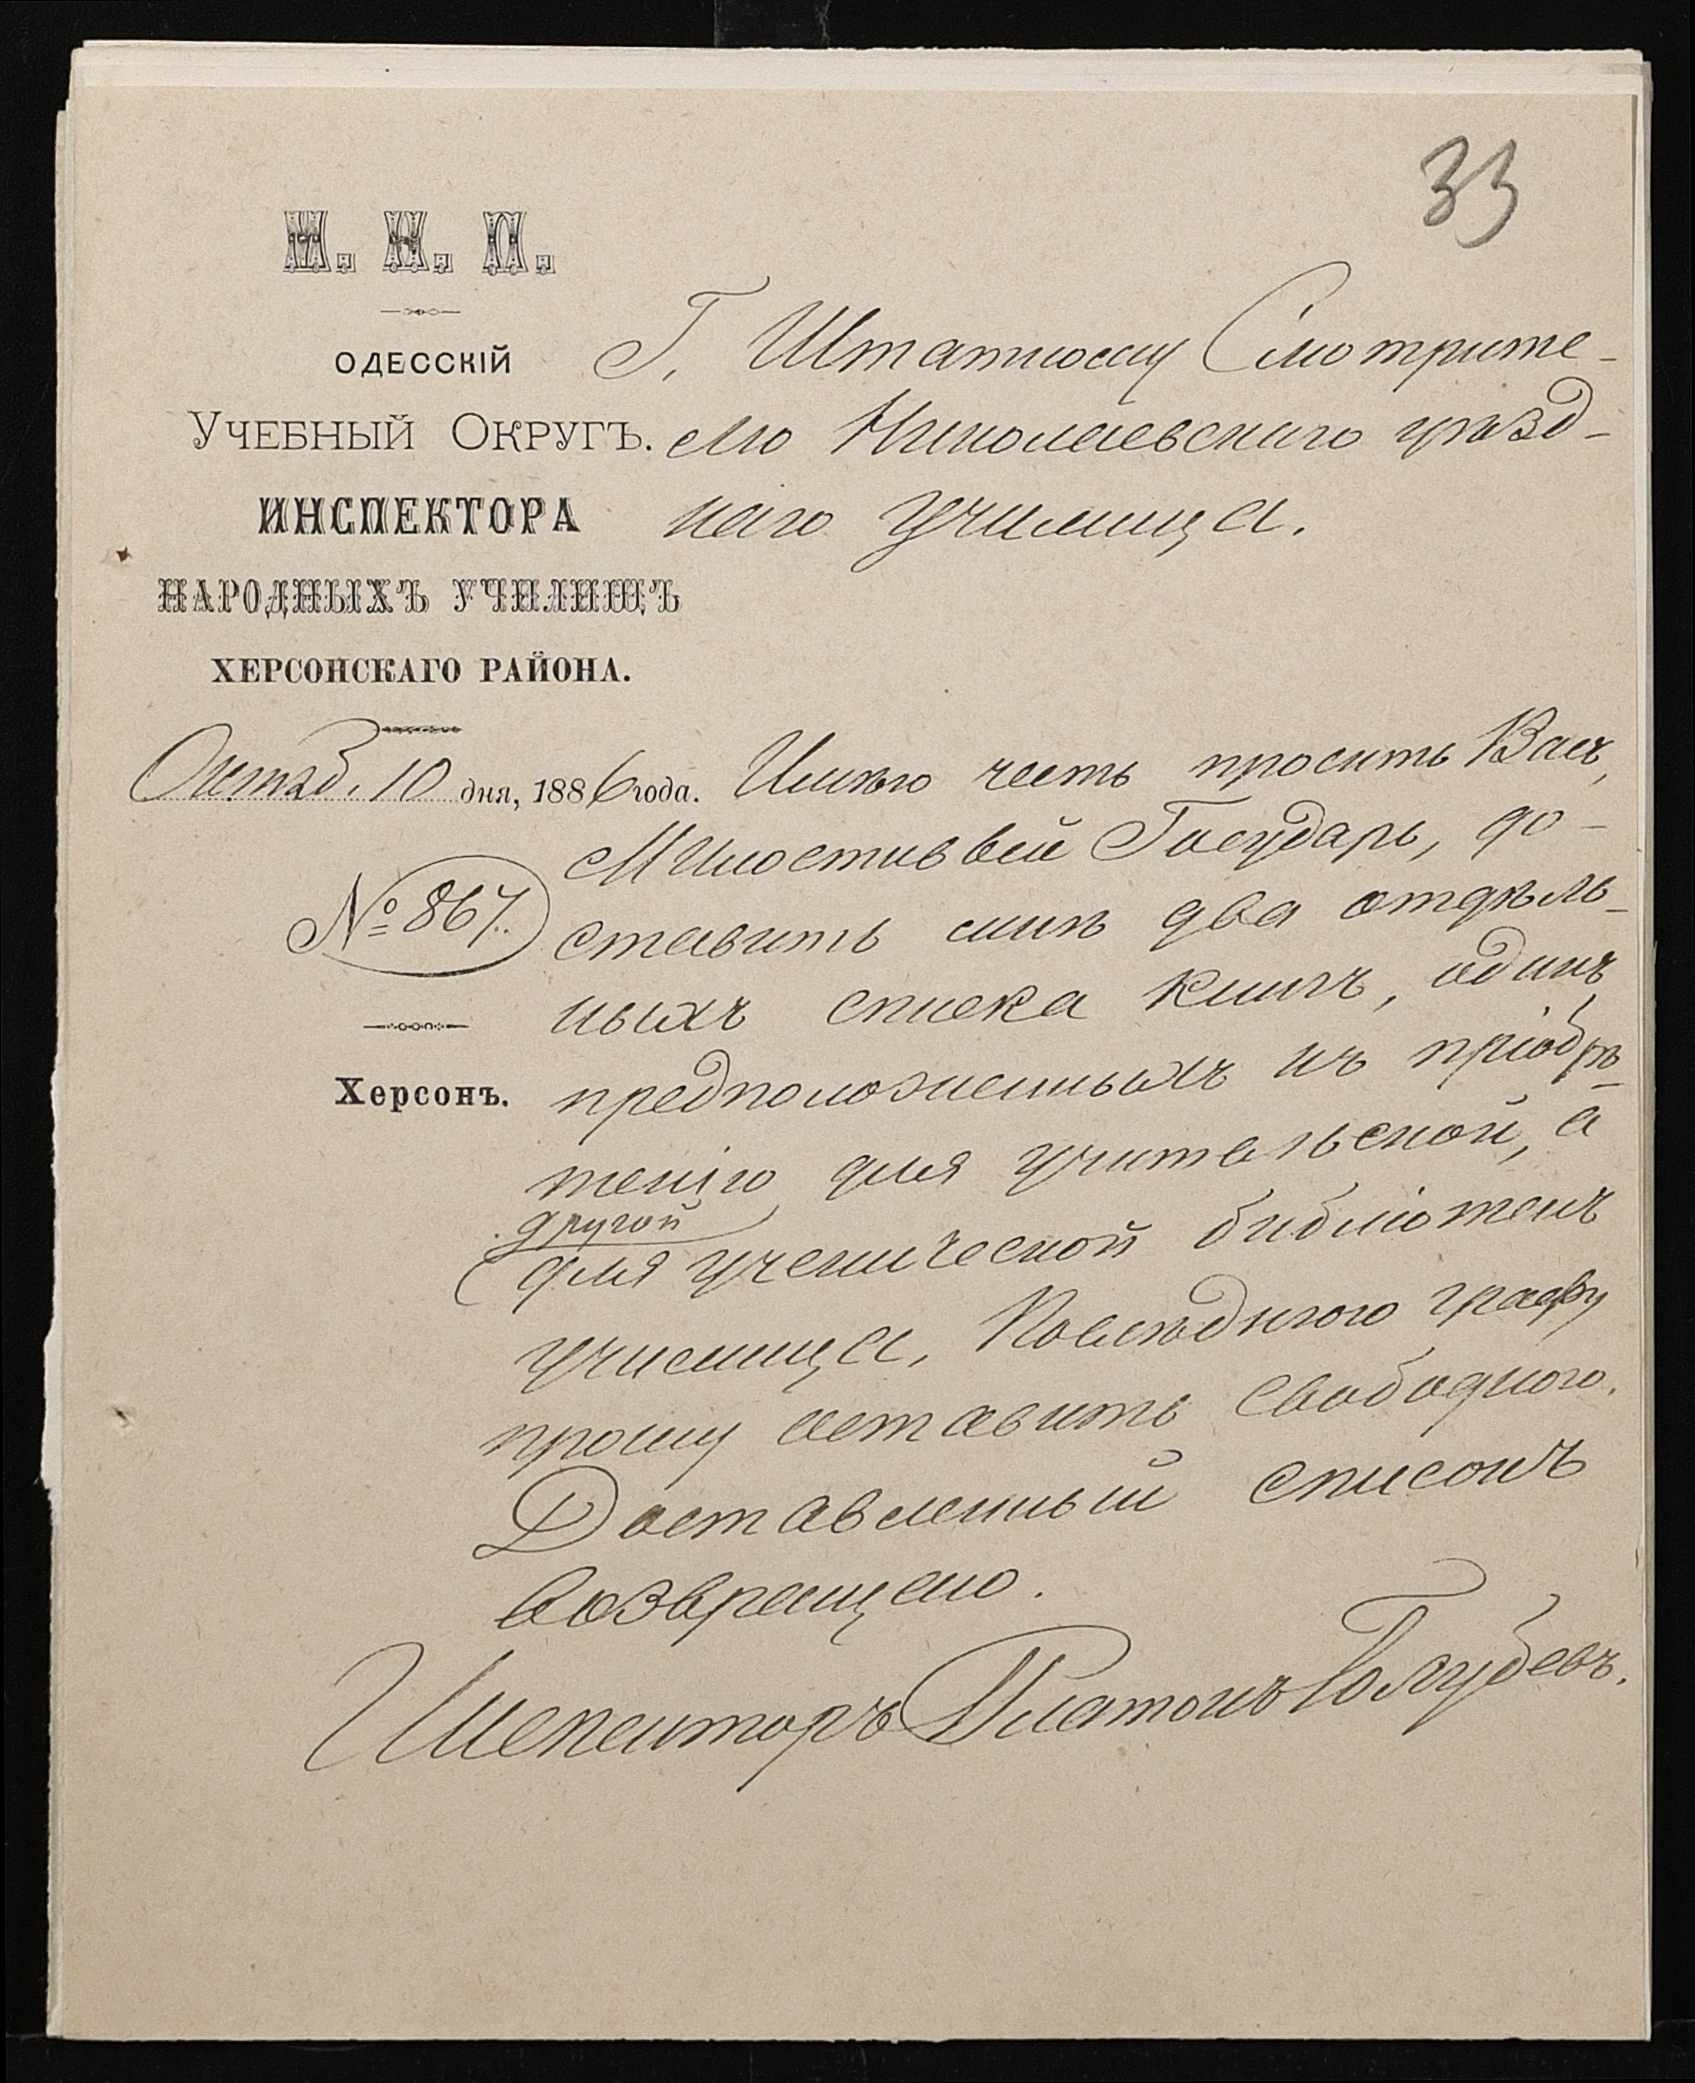 33
М. Н. П.
ОДЕССКІЙ
УЧЕБНЫЙ ОКРУГЪ.
ИНСПЕКТОРА
НАРОДНЫХЪ УЧИЛИЩЪ
ХЕРСОНСКАГО РАЙОНА.
Октяб. 10 дня, 1886 года.
№ 867.
Херсонъ.
Г. Штатному Смотрите-
лю Николаевскаго уѣзд-
наго училища.
Имѣю честь просить Васъ,
Милостивый Государь, до-
ставить мнѣ два отдѣль-
ныхъ списка книгъ, одинъ
предположенныхъ къ пріобрѣ-
тенію для учительской, а
другой
для ученической библіотекъ
училища. Послѣднюю графу
прошу оставить свободною.
Доставленный списокъ
возвращаю.
Инспекторъ Платонъ Голубевъ.